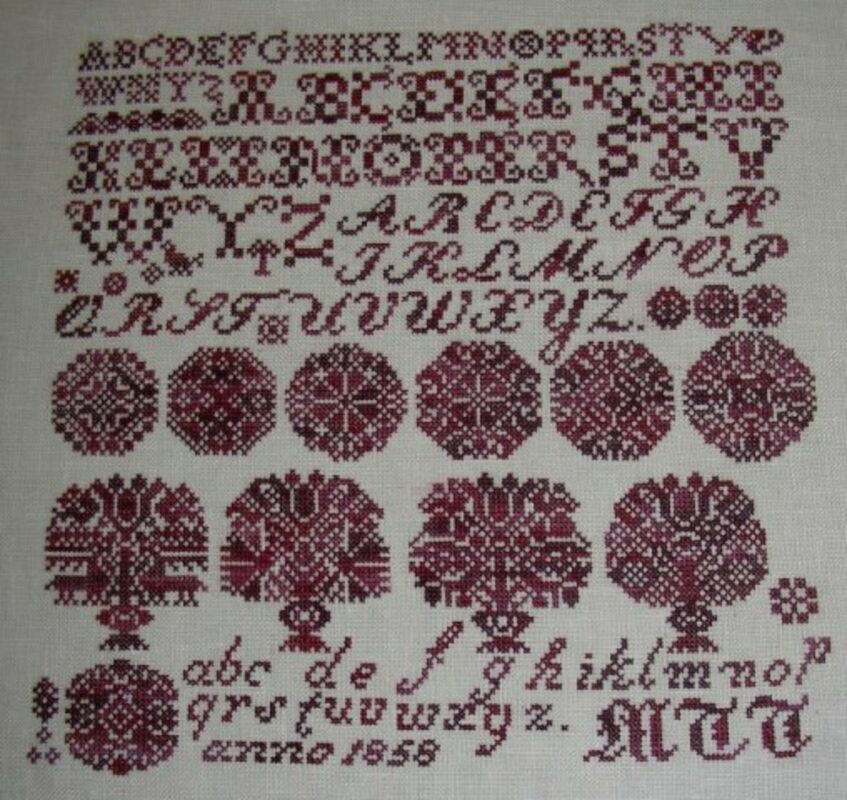 ABCDEFGHIKLMNOPQRSTV
WXYZ ABCDEFGHI
KLMNOPQRSTV
WYZ ABCDEFGH
IKLMNOP
QRSTUVWXYZ.
abc de f g h iklmnop
qrstuvwxyz. MTT
anno 1858